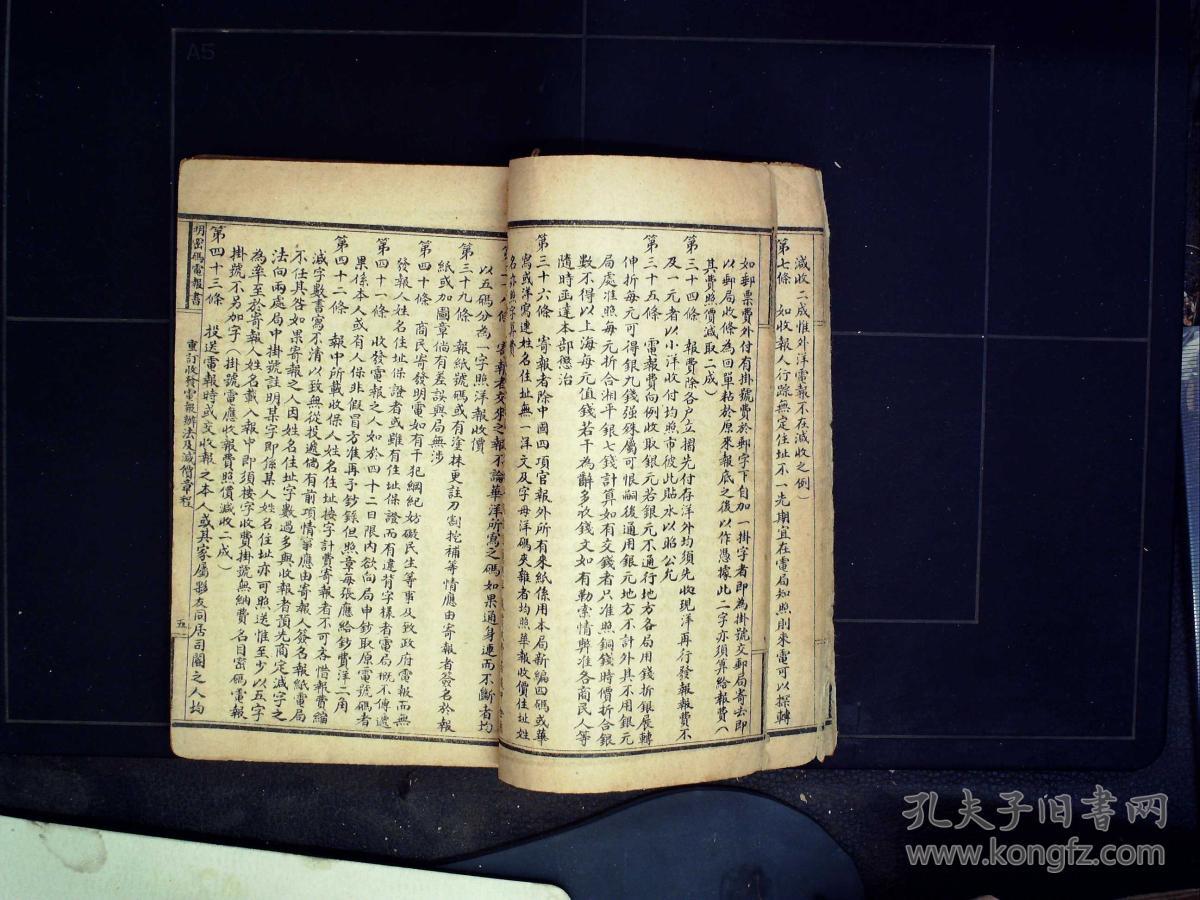 減收二成惟外洋電報不在減收之例）
第七條　如收報人行踪無定住址不一先期宜在電局知照則來電可以探轉
如郵票費外付有掛號費於郵字下自加一掛字者即為掛號交郵局寄去即
以郵局收條為回單粘於原來報底之後以作憑據此二字亦須算給報費（
其費照價減取二成）
第三十四條　報費除各户立摺先付存洋外均須先收現洋再行發報報費不
及一元者以小洋收付均照市彼此貼水以昭公允
第三十五條　電報費向例收取銀元若銀元不通行地方各局用錢折銀展轉
伸折每元可得銀九錢强殊屬可恨嗣後通用銀元地方不計外其不用銀元
局處准照每元折合湘平銀七錢計算如有交錢者只准照銅錢時價折合銀
數不得以上海每元值錢若干為辭多收錢文如有勒索情弊准各商民人等
隨時函達本部懲治
第三十六條　寄報者除中國四項官報外所有來紙係用本局新編四碼或華
寫或洋寫連姓名住址無一洋文及字母洋碼夾雜者均照華報收價住址姓
名亦照字算費
寄報者交來之報不論華洋所寫之碼如果通身連而不斷者均
以五碼分為一字照洋報收價
第三十九條　報紙號碼或有塗抹更註刀割挖補等情應由寄報者簽名於報
紙或加圖章倘有差誤與局無涉
第四十條　商民寄發明電如有干犯綱紀妨礙民生等事及致政府電報而無
發報人姓名住址保證者或雖有住址保證而有違背字樣者電局概不傳遞
第四十一條　收發電報之人如於四十二日限內欲向局申鈔取原電號碼者
果係本人或有人保非假冒方准再予鈔錄但照章每張應給鈔費洋二角
第四十二條　報中所載收保人姓名住址按字計費寄報者不可吝惜報費縮
減字數書寫不清以致無從投遞倘有前項情事應由寄報人簽名報紙電局
不任其咎如果寄報之人因姓名住址字數過多與收報者預先商定減字之
法向兩處局中掛號註明某字即係某人姓名住址亦可照送惟至少以五字
為率至於寄報人姓名載入報中即須按字收費掛號無納費名目密碼電報
掛號不另加字（掛號電應收報費照價減收二成）
第四十三條　投送電報時或交收報之本人或其家屬影友同居司閽之人均
明密碼電報書　重訂收發電報辦法及減價章程　五
A5
孔夫子旧书网
www.kongfz.com